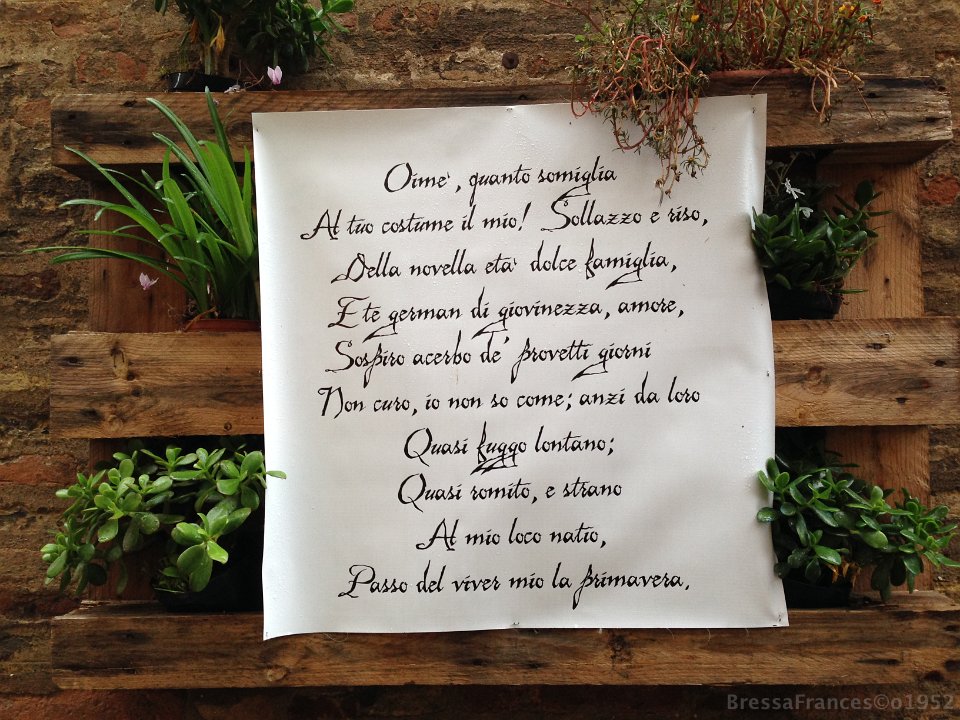 Oime', quanto somiglia
Al tuo costume il mio! Sollazzo e riso,
Della novella eta' dolce famiglia,
E te german di giovinezza, amore,
Sospiro acerbo de' provetti giorni
Non curo, io non so come; anzi da loro
Quasi fuggo lontano;
Quasi romito, e strano
Al mio loco natio,
Passo del viver mio la primavera.
BressaFrances©o1952